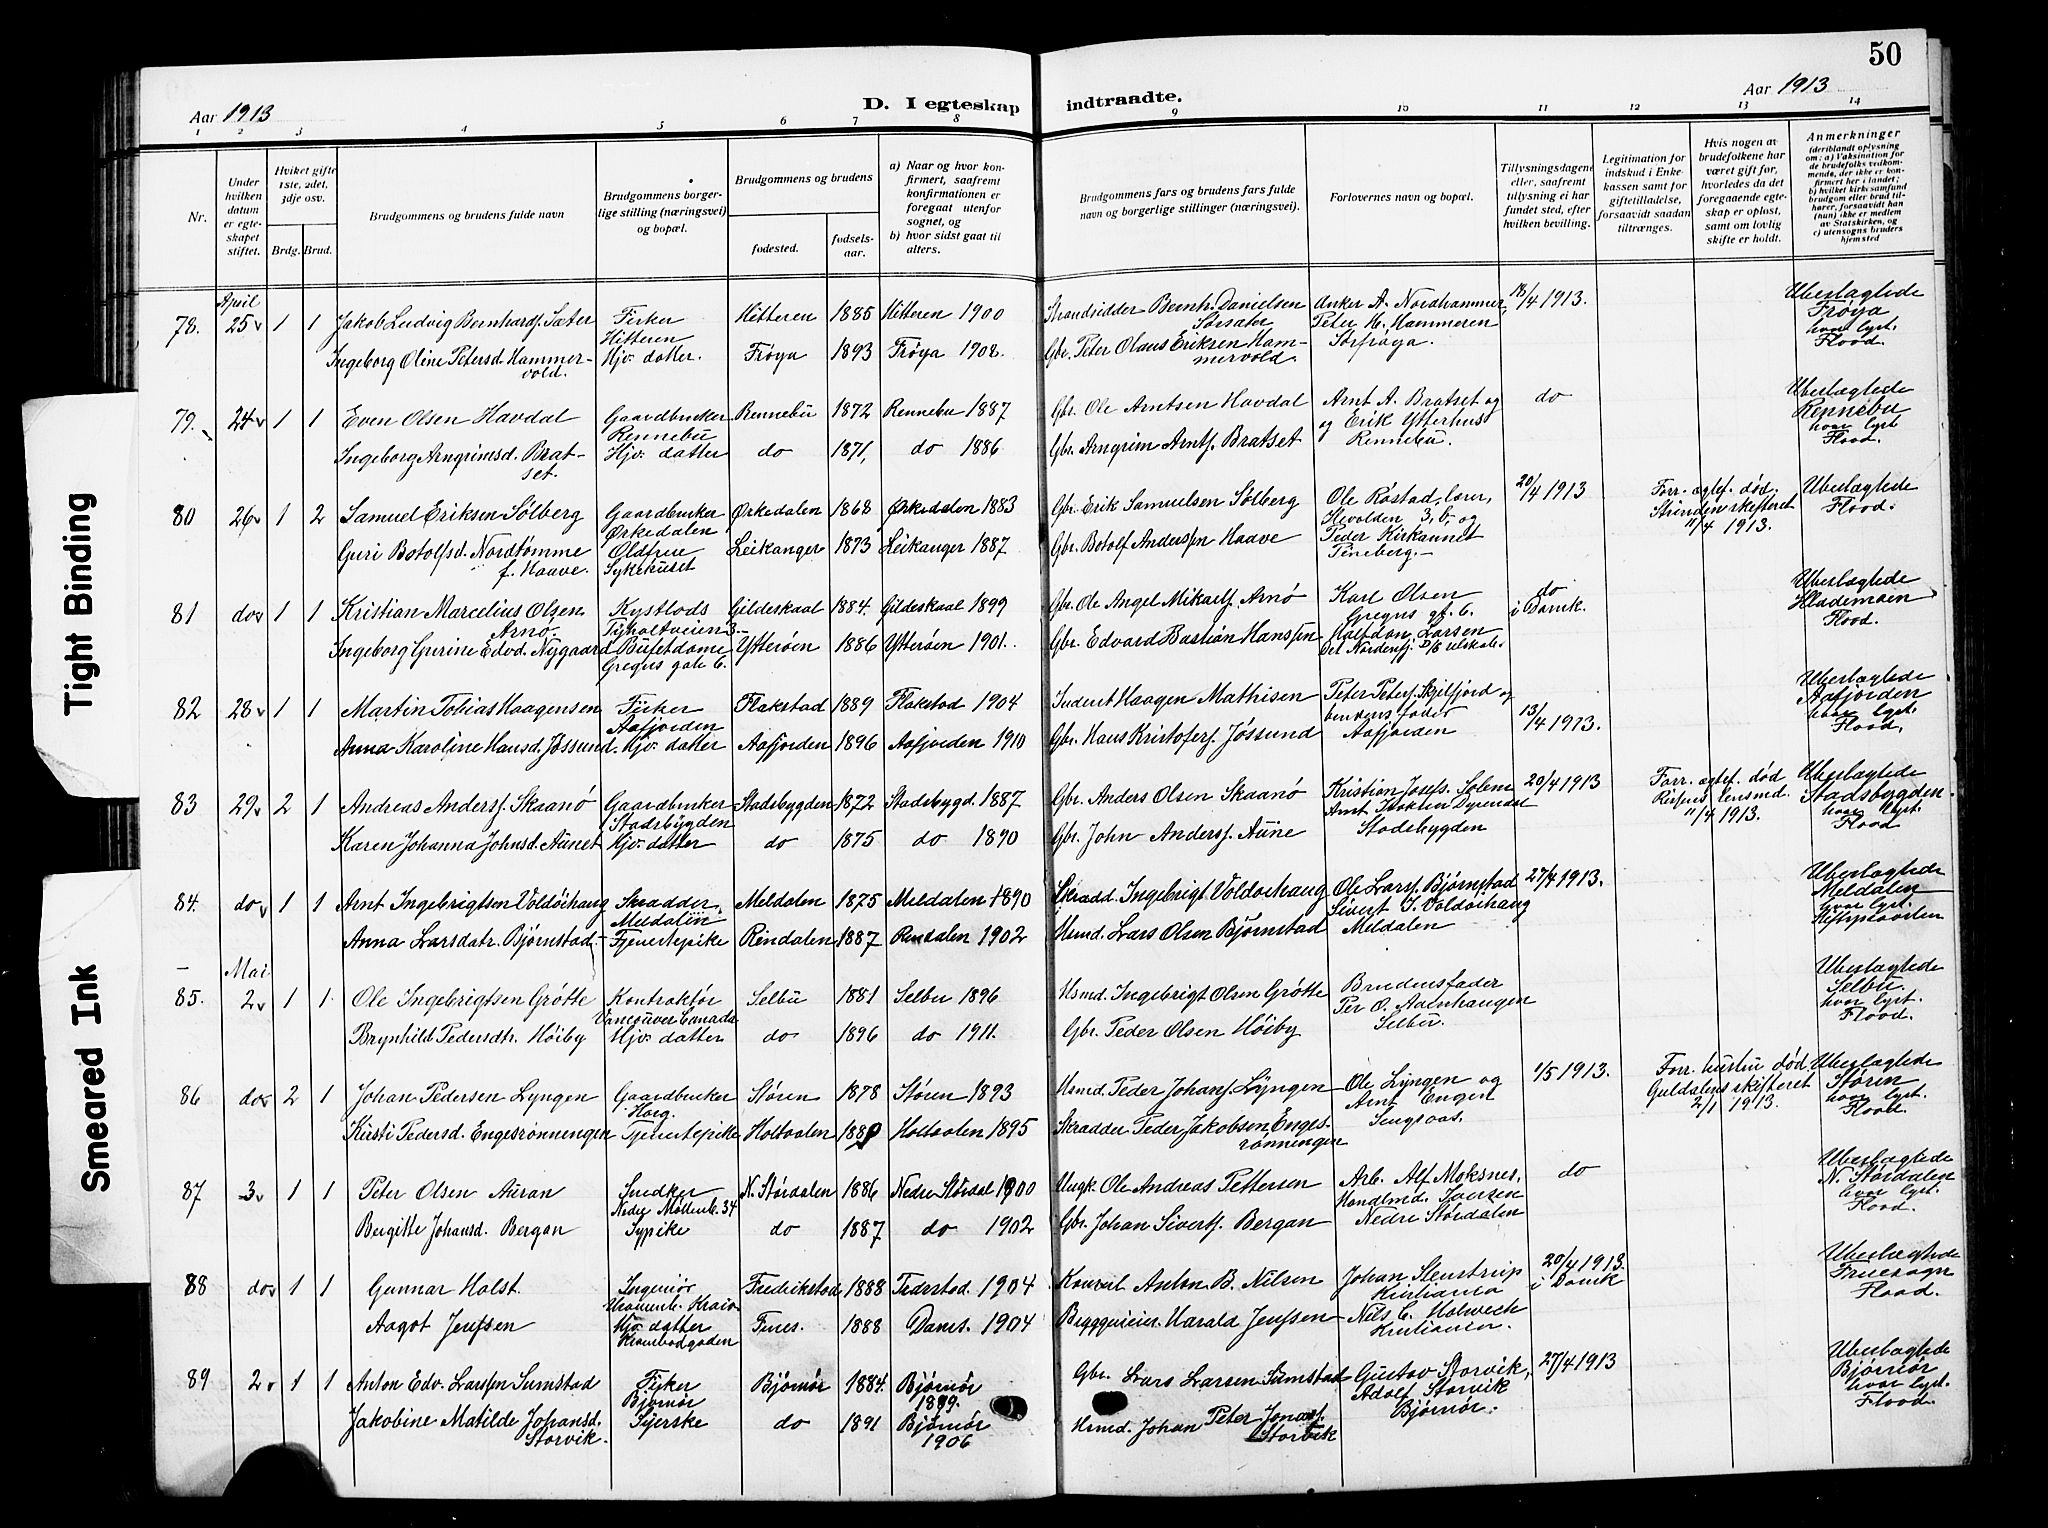 50
Aar 1913
D. I egteskap indtraadte.
Aar 1913
1 2 3 4 5 6 7 8 9 10 11 12 13 14
Nr.
Under hvilken datum er egteskapet stiftet.
Hviket gifte 1ste, 2det, 3dje osv.
Brdg. Brud.
Brudgommens og brudens fulde navn
Brudgommens borgerlige stilling (næringsvei) og bopæl.
Brudgommens og brudens
fødested.
fødselsaar.
a) Naar og hvor konfirmert, saafremt konfirmationen er foregaat utenfor sognet, og
b) hvor sidst gaat til alters.
Brudgommens fars og brudens fars fulde navn og borgerlige stillinger (næringsvei).
Forlovernes navn og bopæl.
Tillysningsdagene eller, saafremt tillysning ei har fundet sted, efter hvilken bevilling.
Legitimation for indskud i Enkekassen samt for giftetilladelse, forsaavidt saadan tiltrænges.
Hvis nogen av brudefolkene har været gift før, hvorledes da det foregaaende egteskap er opløst, samt om lovlig skifte er holdt.
Anmerkninger (deriblandt oplysning om: a) Vaksination for de brudefolks vedkommende, der ikke er konfirmert her i landet; b) hvilket kirkesamfund brudgom eller brud tilhører, forsaavidt han (hun) ikke er medlem av Statskirken, og c) utensogns bruders hjemsted
April
78. 25 1 1 Jakob Ludvig Bernhards. Sæter Fisker Hitteren Hitteren 1885 Hitteren 1900 Strandsidder Bernh. Danielsen Sørsæter Anker A. Nordhammer, 18/4 1913. Ubeslægtede Frøya hvor lyst. Flood.
Ingeborg Oline Petersd. Hammervold. Hjv. datter. Frøya 1893 Frøya 1908. Gbr. Peter Olaus Eriksen Hammervold. Peter H. Hammeren Sørfrøya.
79. 24 1 1 Even Olsen Havdal Gaardbruker Rennebu Rennebu 1872 Rennebu 1887 Gbr. Ole Arntsen Havdal Arnt A. Bratset og do Ubeslægtede Rennebu hvor lyst Flood.
Ingeborg Arngrimsd. Bratset. Hjv. datter do 1871, do 1886 Gbr. Arngrim Arnts. Bratset og Erik Ytterhus Rennebu.
80 26 1 2 Samuel Eriksen Sølberg Gaardbruker Ørkedalen Ørkedalen 1868 Ørkedalen 1883 Gbr. Erik Samuelsen Sølberg Ole Røstad, lærer, 20/4 1913 Forr. ægtef. død. Strinden skifteret 11/4 1913. Ubeslægtede Flood.
Guri Botolfsd. Nordtømme f. Haave. Oldfrue Sykehuset Leikanger 1873 Leikanger 1887 Gbr. Botolf Anderssen Haave Peder Kirkaunet
81 do 1 1 Kristian Marcelius Olsen Arnø Kystlods Tyholtveien 3 Gildeskaal 1884. Gildeskaal 1899 Gbr. Ole Angel Mikaels. Arnø Karl Olsen Gregus gt. 6. do i Domk. Ubeslægtede Hlademoen Flood.
Ingeborg Gurine Edvd. Nygaard Bufetdame Gregus gate 6. Ytterøen 1886 Ytterøen 1901. Gbr. Edvard Bastian Hanssen
82 28 1 1 Martin Tobias Haagensen Fisker Aafjorden Flakstad 1889 Flakstad 1904 Inderst Haagen Mathisen Peter Peters. Skjelfjord og 13/4 1913. Ubeslægtede Aafjorden hvor lyst. Flood.
Anna Karoline Hansd. Jøssund. Hjv. datter Aafjorden 1896 Aafjorden 1910 Gbr. Hans Kristofers. Jøssund brudens fader Aafjorden
83 29 2 1 Andreas Anders. Skaanø Gaardbruker Stadsbygden Stadsbygden 1872 Stadsbygd. 1887 Gbr. Anders Olsen Skaanø Kristian Josefs. Solem 20/4 1913 Forr. ægtef. død Rissens lensmd. 11/4 1913. Ubeslægtede Stadsbygden. hvor lyst. Flood
Karen Johanna Johnsd. Aunet Hjv. datter do 1875 do 1890 Gbr. John Anders. Aune Stadsbygden
84. do 1 1 Arnt Ingebrigtsen Voldøihaug Skrædder. Meldalen Meldalen 1875 Meldalen 1890 Skrædd. Ingebrigt Voldøihaug Ole Lars. Bjørnstad 27/4 1913. Ubeslægtede Meldalen hvor lyst. Stiftsprovsten
Anna Larsdatr. Bjørnstad Tjenestepike Rendalen 1887 Rendalen 1902 Hsmd. Lars Olsen Bjørnstad Sivert I. Voldøihaug Meldalen
Mai
85. 2 1 1 Ole Ingebrigtsen Grøtte Kontraktør Vancouver Canada Selbu 1881 Selbu 1896 Hsmd. Ingebrigt Olsen Grøtte Brudensfader Ubeslægtede Selbu. hvor lyst. Flood.
Brynhild Pedersdtr. Høiby Hjv. datter do 1896 do 1911. Gbr. Peder Olsen Høiby Per O. Aalnhaugen Selbu.
86 do 2 1 Johan Pedersen Lyngen Gaardbruker Horg. Støren 1878 Støren 1893 Hsmd. Peder Johans. Lyngen Ole Lyngen og 1/5 1913. Forr. hustru død Guldalens skifteret 2/1 1913. Ubeslægtede Støren hvor lyst. Flood.
Kirsti Pedersd. Engesrønningen Tjenestepike Holtaalen Holtaalen 1895 Skrædder Peder Jakobsen Engesrønningen Arnt Engen Sengsaas.
87 3 1 1 Peter Olsen Auran Snedker Nedre Møllenb. 34 N. Stördalen 1886 Nedre Stördal 1900 Ungk. Ole Andreas Pettersen Arb. Alf Moksnes, do Ubeslægtede N. Stördalen hvor lyst. Flood.
Bergitte Johansd. Bergan Sypike do 1887 do 1902 Gbr. Johan Siverts. Bergan Handlmd. Iversen Nedre Stördalen
88 do 1 1 Gunnar Holst. Ingeniør Fredrikstad 1888 1904 Konsul Anton B. Nilsen Johan Stenstrup Kristiania 20/4 1913. i Domk Ubeslægtede Fruesogn Flood.
Aagot Jenssen Hjv. datter Krambodgaden 1888 1904 Byggmeier. Harald Jenssen Nils C. Holweck Kristiania.
89 2 1 1 Anton Edv. Larssen Sumstad Fisker Bjørnør Bjørnør 1884. Bjørnør 1899. Gbr. Lars Larsen Sumstad Gustav Storvik, 27/4 1913 Ubeslægtede Bjørnør hvor lyst. Flood.
Jakobine Matilde Johansd. Storvik. Syerske do 1891 Bjørnør 1906 Hsmd. Johan Peter Jonas. Storvik Adolf Storvik Bjørnør.
Tight Binding
Smeared Ink